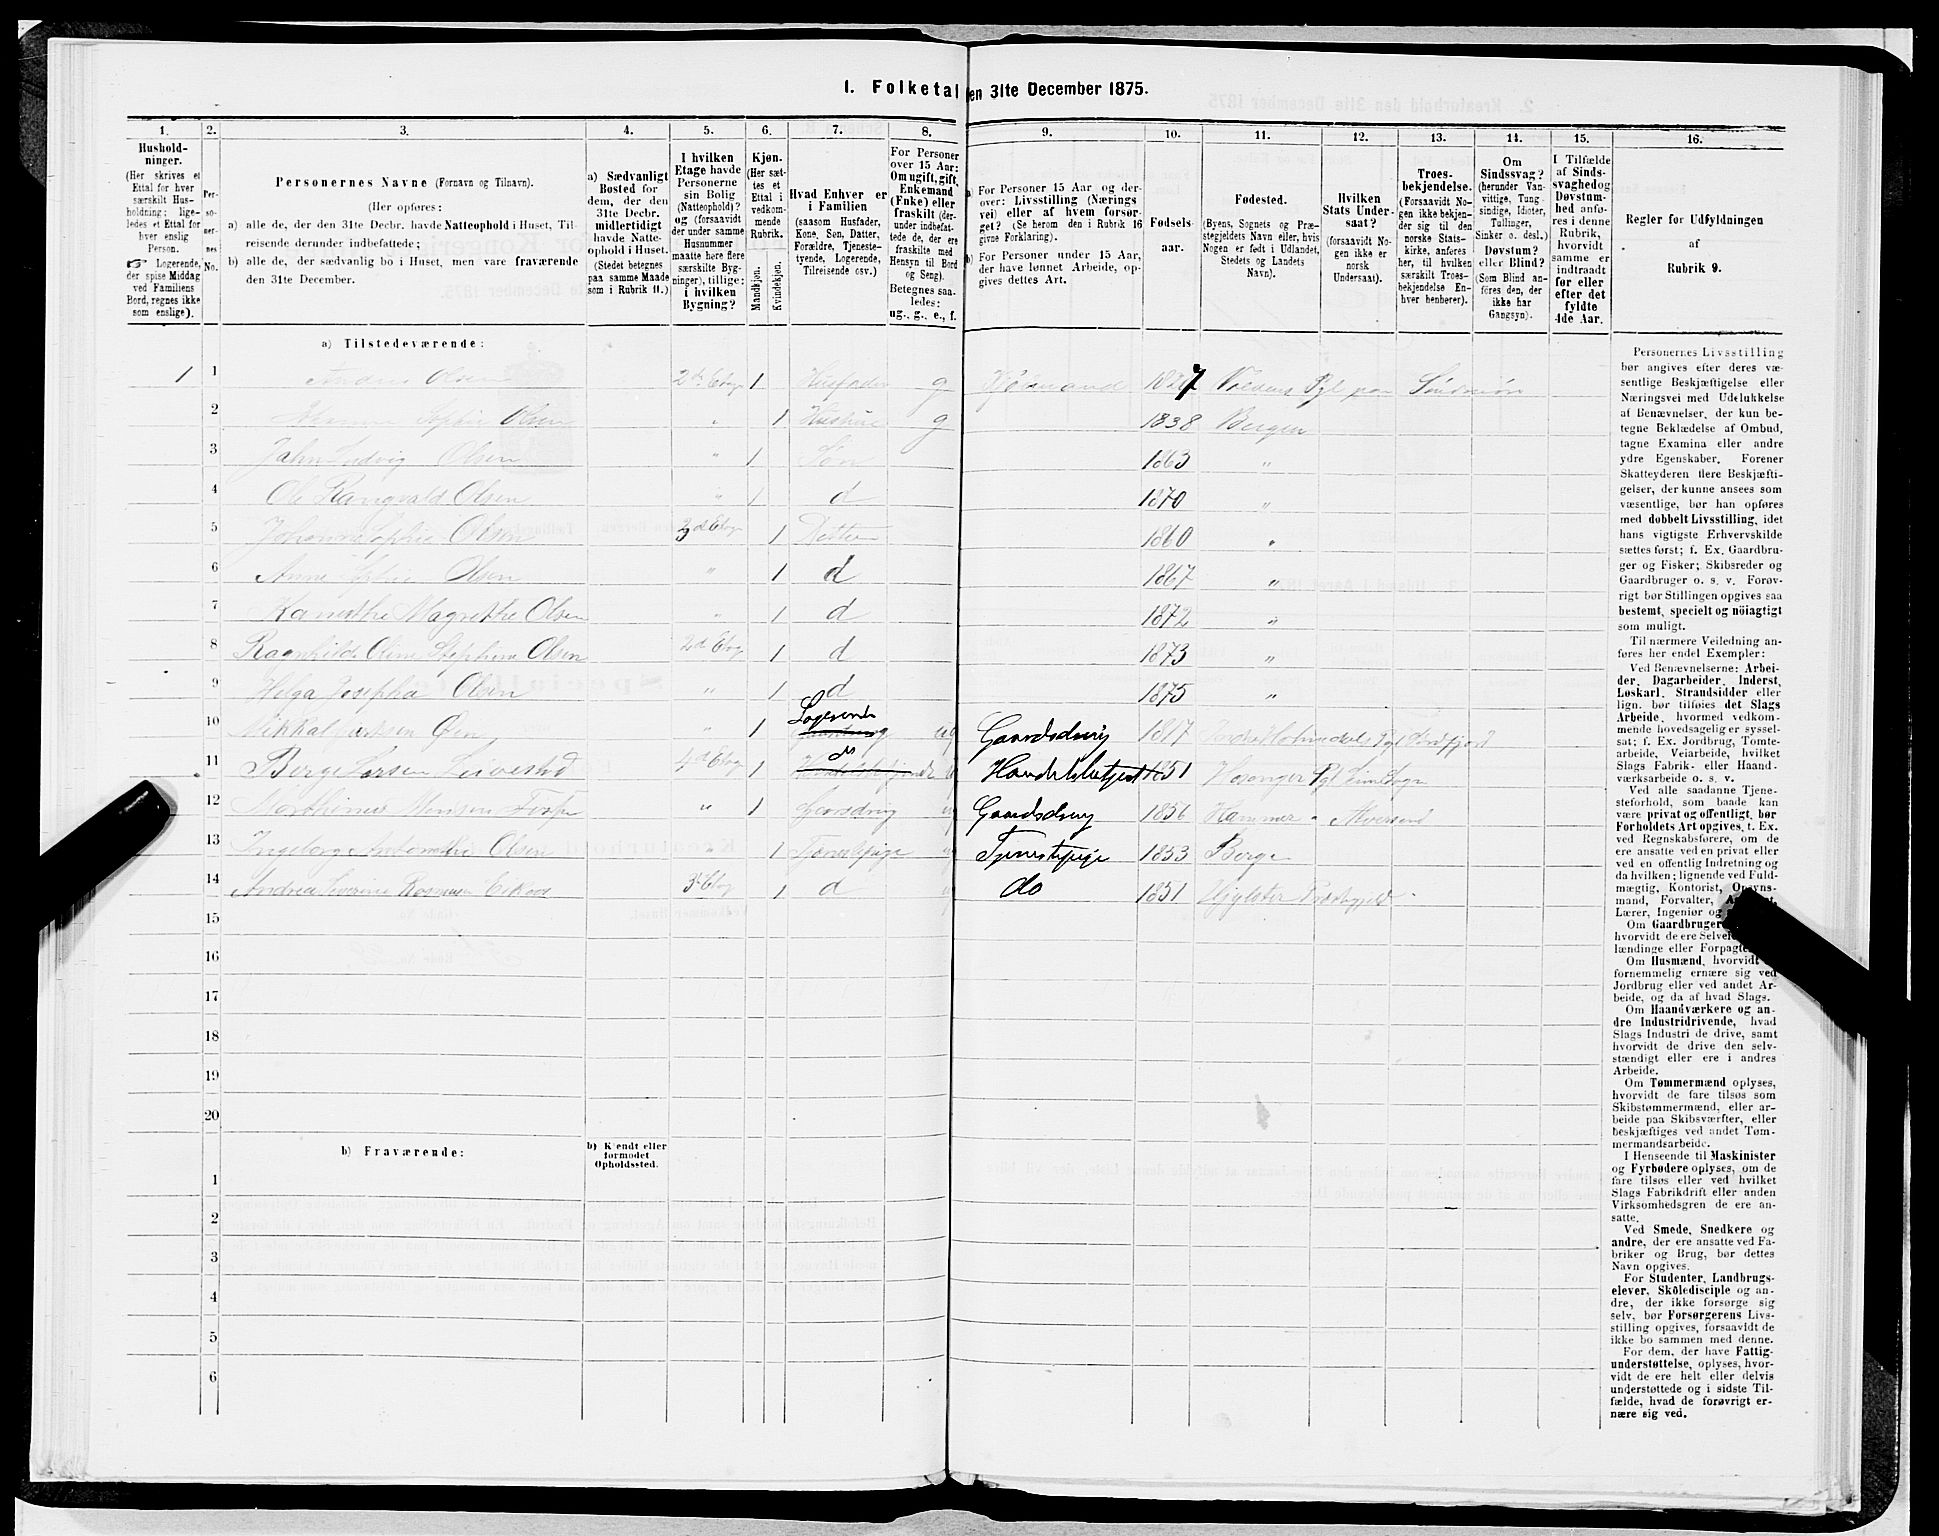 1. Folketal den 31te December 1875.
1. 2. 3. 4. 5. 6. 7. 8. 9. 10. 11. 12. 13. 14. 15. 16.
Hushold-
ninger.
(Her skrives et
Ettal for hver
særskilt Hus-
holdning; lige-
ledes et Ettal for
hver enslig
Person.
☞ Logerende,
der spise Middag
ved Familiens
Bord, regnes ikke
som enslige).
Per-
so-
ner-
nes
No.
Personernes Navne (Fornavn og Tilnavn).
(Her opføres:
a) alle de, der den 31te Decbr. havde Natteophold i Huset, Til-
reisende derunder indbefattede;
b) alle de, der sædvanlig bo i Huset, men vare fraværende
den 31te December.
a) Sædvanligt
Bosted for
dem, der den
31te Decbr.
midlertidigt
havde Natte-
ophold i Huset.
(Stedet betegnes
paa samme Maade
som i Rubrik 11.)
I hvilken
Etage havde
Personerne
sin Bolig
(Natteophold)?
og (forsaavidt
der under samme
Husnummer
maatte høre flere
særskilte Byg-
ninger), tillige:
i hvilken
Bygning?
Kjøn.
(Her sæt-
tes et
Ettal i
vedkom-
mende
Rubrik.
Mandkjøn.
Kvindekjøn.
Hvad Enhver er
i Familien
(saasom Husfader,
Kone, Søn, Datter,
Forældre, Tjeneste-
tyende, Logerende,
Tilreisende osv.)
For Personer
over 15 Aar:
Om ugift, gift,
Enkemand
(Enke) eller
fraskilt (der-
under indbefat-
tede de, der ere
fraskilte med
Hensyn til Bord
og Seng).
Betegnes saa-
ledes:
ug., g., e., f.
a) For Personer 15 Aar og der-
over: Livsstilling (Nærings
vei) eller af hvem forsør-
get? (Se herom den i Rubrik 16
givne Forklaring).
b) For Personer under 15 Aar,
der have lønnet Arbeide, op-
gives dettes Art.
Fødsels-
aar.
Fødested.
(Byens, Sognets og Præ-
stegjeldets Navn eller, hvis
Nogen er født i Udlandet,
Stedets og Landets
Navn).
Hvilken
Stats Under-
saat?
(forsaavidt No-
gen ikke er
norsk
Undersaat).
Troes-
bekjendelse.
(Forsaavidt No-
gen ikke bekjen-
der sig til den
norske Stats-
kirke, anføres
her, til hvilken
særskilt Troes-
bekjendelse En-
hver henhører).
Om
Sindssvag?
(herunder Van-
vittige, Tung-
sindige, Idioter,
Tullinger,
Sinker o. desl.)
Døvstum?
eller Blind?
(Som Blind an-
føres den, der
ikke har
Gangsyn).
I Tilfælde
af Sinds-
svaghed og
Døvstum-
hed anfø-
res i denne
Rubrik,
hvorvidt
samme er
indtraadt
før eller
efter det
fyldte
4de Aar.
Regler for Udfyldningen
af
Rubrik 9.
a) Tilstedeværende:
1 1 Olsen 2d Etage 1 Husfader g 1827
2 Sophie Olsen " 1 Hustru g 1838 Bergen
3 Jahn Ludvig Olsen " 1 Søn 1863 "
4 Ole Rangvald Olsen " 1 d 1870 "
5 Johanne Sophie Olsen 3d Etage 1 Datter 1860 "
6 Anne Sophie Olsen " 1 d 1867 "
7 Magrethe Olsen " 1 d 1872 "
8 Ragnhilde Oline Olsen 2d Etag 1 d 1873 "
9 Helga Josepha Olsen " 1 d 1875 "
10 Mikkal " 1 Logerende ug Gaardsdreng 1817
11 Berge Larsen 4d Etag 1 Handelsbetjent 1851
12 Monsen " 1 Gaardsdreng ug Gaardsdreng 1856 Hammer
13 Ingeborg Olsen " 1 Tjenestepige ug Tjenestepige 1853
14 Andrea Severine 3d Etag 1 d ug do 1851 Præstegjeld
15
16
17
18
19
20
b) Fraværende:
b) Kjendt eller
formodet
Opholdssted.
1
2
3
4
5
6
Personernes Livsstilling
bør angives efter deres væ-
sentlige Beskjæftigelse eller
Næringsvei med Udelukkelse
af Benævnelser, der kun be-
tegne Beklædelse af Ombud,
tagne Examina eller andre
ydre Egenskaber. Forener
Skatteyderen flere Beskjæfti-
gelser, der kunne ansees som
væsentlige, bør han opføres
med dobbelt Livsstilling, idet
hans vigtigste Erhvervskilde
sættes først; f. Ex. Gaardbru-
ger og Fisker; Skibsreder og
Gaardbruger o. s. v. Forøv-
rigt bør Stillingen opgives saa
bestemt, specielt og nöiagtigt
som muligt.
Til nærmere Veiledning an-
føres her endel Exempler:
Ved Benævnelserne: Arbei-
der, Dagarbeider, Inderst,
Løskarl, Strandsidder eller
lign. bør tilføies det Slags
Arbeide, hvormed vedkom-
mende hovedsagelig er syssel-
sat; f. Ex. Jordbrug, Tomte-
arbeide, Veiarbeide, hvilket
Slags Fabrik- eller Haand-
værksarbeide o. s. v.
Ved alle saadanne Tjene-
steforhold, som baade kan
være privat og offentligt, bør
Forholdets Art opgives, t. Ex.
ved Regnskabsførere, om de
ere ansatte ved en privat eller
ved en offentlig Indretning og
da hvilken; lignende ved Fuld-
mægtig, Kontorist, Opsyns-
mand, Forvalter,
Lærer, Ingeniør og
Om Gaardbrugere
hvorvidt de ere
lændinge eller
Om Husmænd, hvorvidt
fornemmelig ernære sig ved
Jordbrug eller ved andet Ar-
beide, og da af hvad Slags.
Om Haandværkere og an-
dre Industridrivende, hvad
Slags Industri de drive, samt
hvorvidt de drive den selv-
stændigt eller ere i andres
Arbeide.
Om Tømmermænd oplyses,
hvorvidt de fare tilsøs som
Skibstømmermænd, eller ar-
beide paa Skibsværfter, eller
beskjæftiges ved andet Tøm-
mermandsarbeide.
I Henseende til Maskinister
og Fyrbødere oplyses, om de
fare tilsøs eller ved hvilket
Slags Fabrikdrift eller anden
Virksomhedsgren de ere an-
satte.
Ved Smede, Snedkere og
andre, der ere ansatte ved Fa-
briker og Brug, bør dettes
Navn opgives.
For Studenter, Landbrugs-
elever, Skóledisciple og an-
dre, der ikke forsørge sig
selv, bør Forsørgerens Livs-
stilling opgives, forsaavidt de
ikke bo sammen med denne.
For dem, der have Fattig-
understøttelse, oplyses, hvor-
vidt de ere helt eller delvis
understøttede og i sidste Til-
fælde, hvad de forøvrigt er-
nære sig ved.